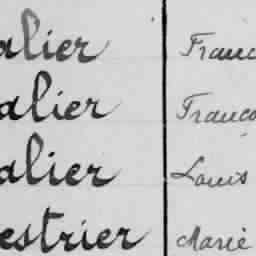 alier Franc
alier Franco
alier Louis
estrier Marie